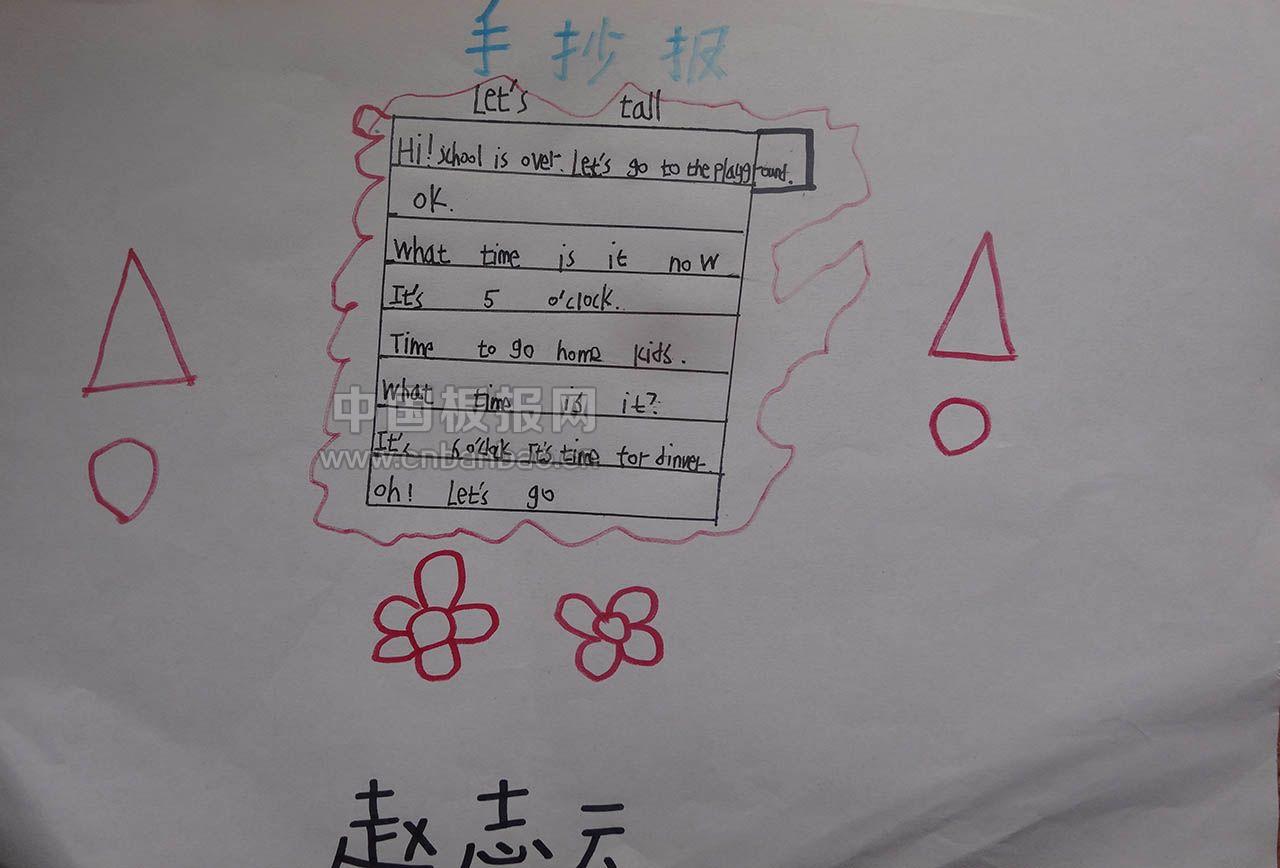 手抄报
Let's tall
Hi! school is over. Let's go to the playground.
ok.
What time is it now
It's 5 o'clock.
Time to go home kids.
What time is it?
It's 6 o'clok It's time for dinver.
oh! Let's go
中国板报网
www.cnbanbao.cn
赵志云